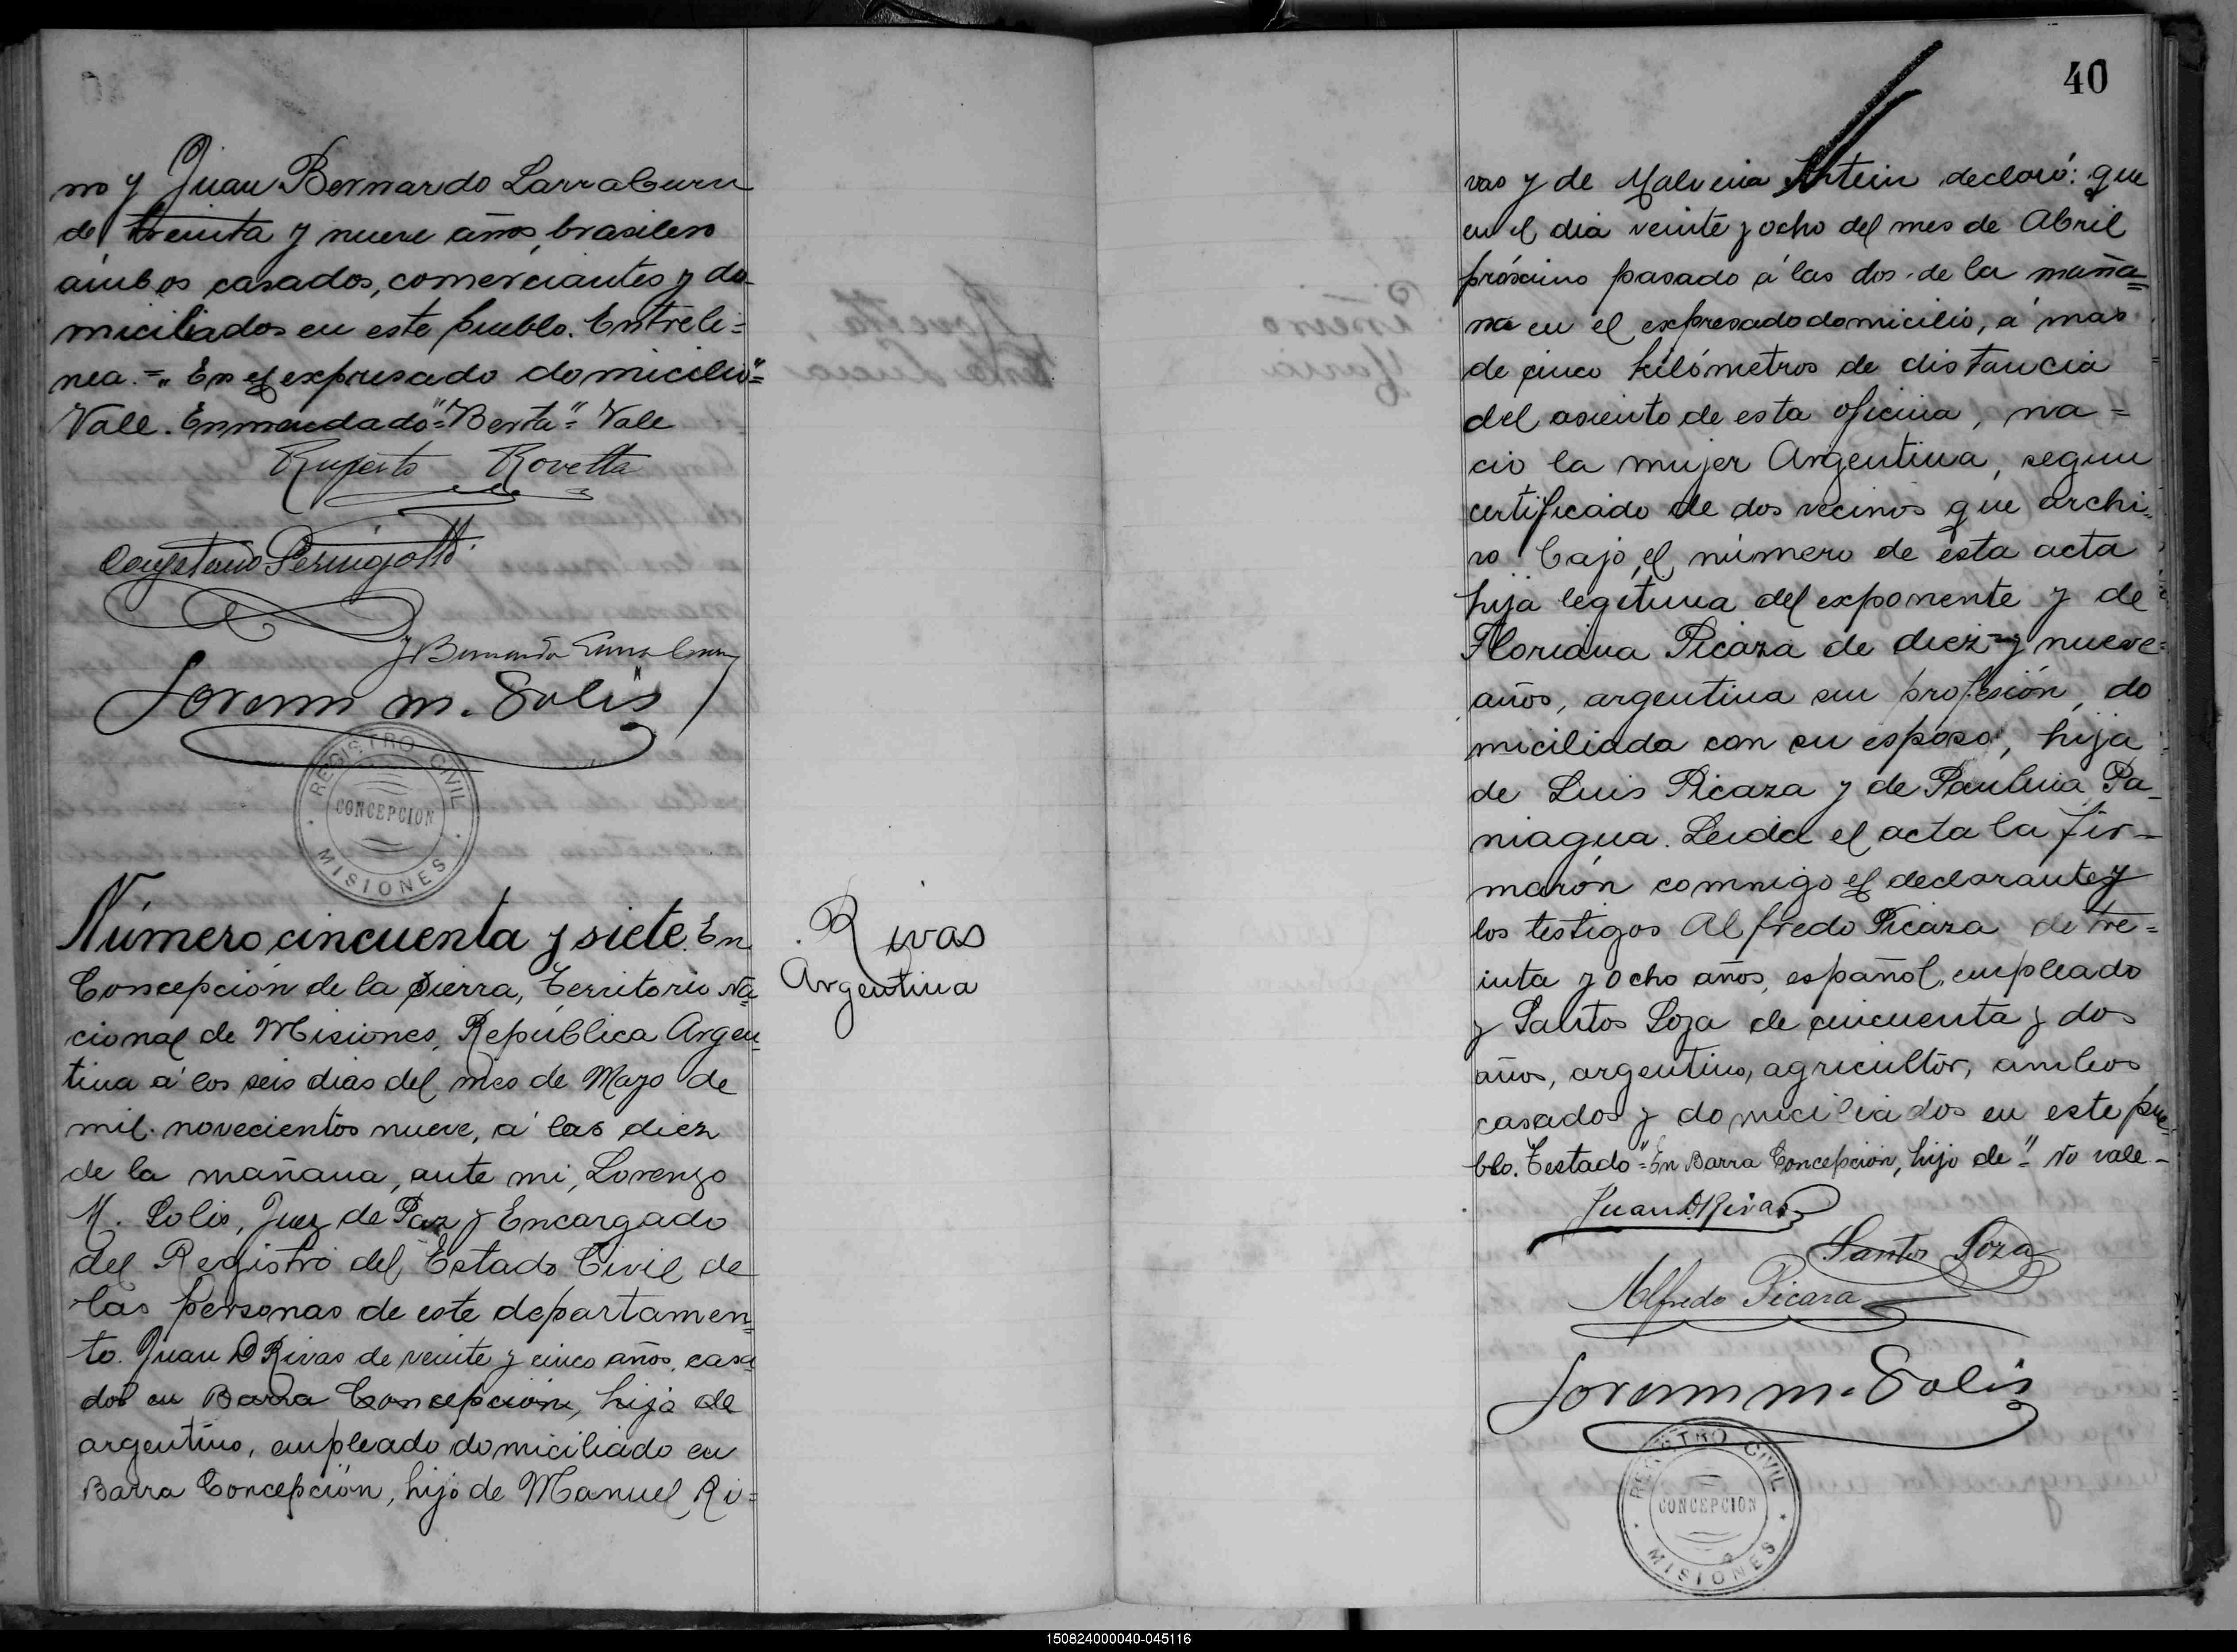 no y Juan Bernardo Larraburu
de treinta y nueve años, brasilero
ámbos casados, comerciantes y do-
miciliados en este pueblo. Entreli=
nea.=„ En el expresado domicilio"=
Vale. Enmendado"="Berta"= Vale
Ruperto Rovetta
Cayetano
J Bernardo Larraburu
Lorenzo M. Solis
REGISTRO CIVIL
CONCEPCION
MISIONES
Número cincuenta y siete. En
Concepción de la Sierra, Territorio Na=
cional de Misiones, República Argen=
tina á los seis dias del mes de Mayo de
mil novecientos nueve, á las diez
de la mañana, ante mi, Lorenzo
M. Solis, Juez de Paz y Encargado
del Registro del Estado Civil de
las personas de este departamen=
to. Juan D Rivas de veinte y cinco años, casa
do en Barra Concepción, hijo de
argentino, empleado domiciliado en
Barra Concepción, hijo de Manuel Ri=
Rivas
Argentina
40
vas y de Malvina declaró: que
en el dia veinte y ocho del mes de Abril
próximo pasado á las dos de la maña=
na en el expresado domicilio, á mas
de cinco kilómetros de distancia
del asiento de esta oficina, na=
ció la mujer Argentina, segun
certificado de dos vecinos que archi=
vo bajo el número de esta acta
hija legítima del exponente y de
Floriana Picaza de diez y nueve=
años, argentina sin profesión, do
miciliada con su esposo, hija
de Luis Picaza y de Paulina Pa-
niagua. Leida el acta la fir-
marón conmigo el declarante y
los testigos Alfredo Picaza de tre=
inta y ocho años, español, empleado
y Santos Loza de cincuenta y dos
años, argentino, agricultor, ambos
casados y domiciliados en este pue=
blo. Testado"=En Barra Concepción, hijo de"= No vale-
Juan D. Rivas
Santos Loza
Alfredo Picaza
Lorenzo M. Solis
REGISTRO CIVIL
CONCEPCION
MISIONES
150824000040-045116